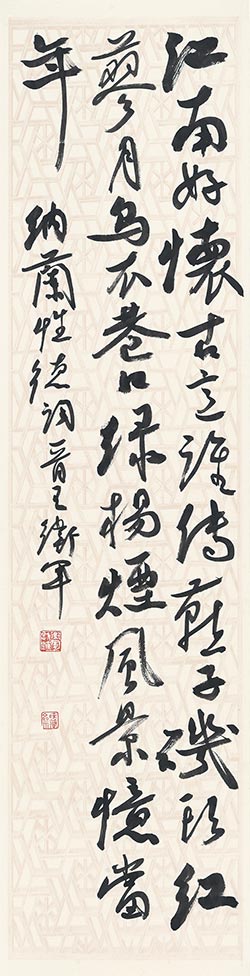 江南好懷古意誰傳燕子磯頭紅
蓼月烏衣巷口緑楊煙風景憶當
年
納蘭性德詞晉王衛軍